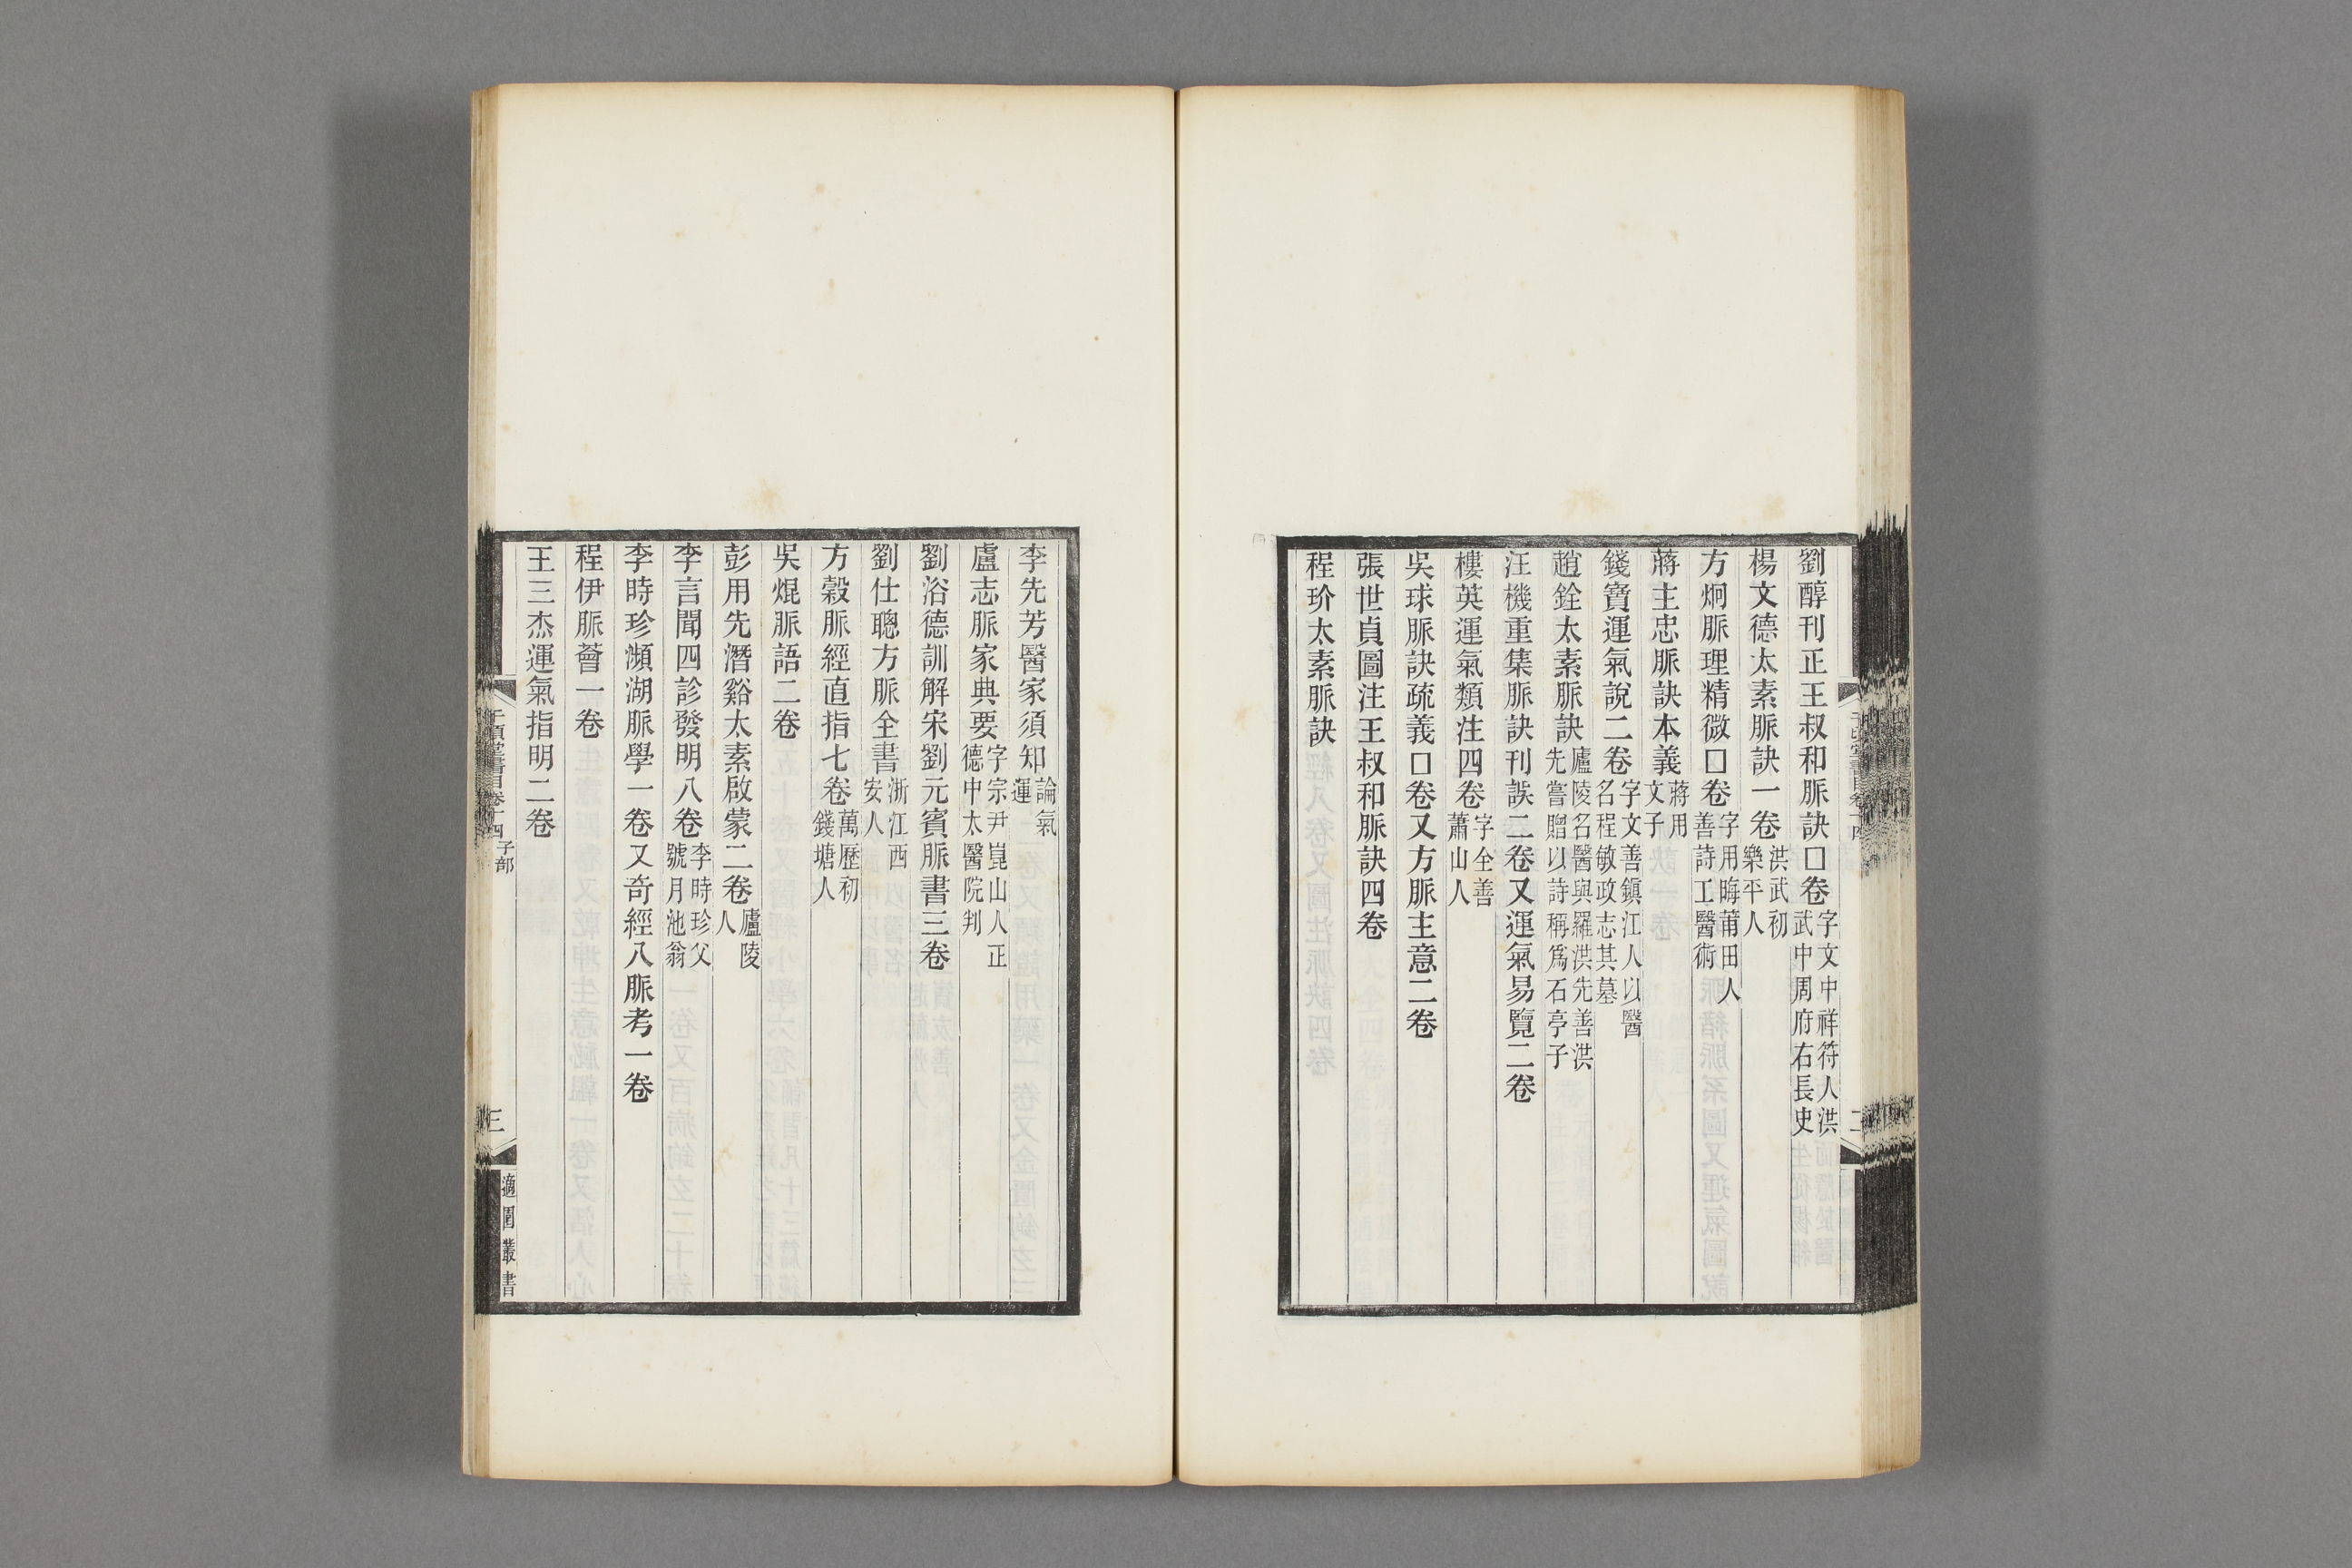 劉醇刊正王叔和脈訣□卷字文中祥符人洪武中周府右長史
楊文德太素脈訣一卷洪武初樂平人
方炯脈理精微□卷字用晦莆田人善詩工醫術
蔣主忠脈訣本義蔣用文子
錢寶運氣說二卷字文善鎭江人以醫名程敏政志其墓
趙銓太素脈訣廬陵名醫與羅洪先善洪先嘗贈以詩稱爲石亭子
汪機重集脈訣刊誤二卷又運氣易覽二卷
樓英運氣類注四卷字全善蕭山人
吳球脈訣疏義□卷又方脈主意二卷
張世貞圖注王叔和脈訣四卷
程玠太素脈訣
二
李先芳醫家須知論氣運
盧志脈家典要字宗尹崑山人正德中太醫院判
劉浴德訓解宋劉元賓脈書三卷
劉仕聰方脈全書浙江西安人
方穀脈經直指七卷萬歷初錢塘人
吳焜脈語二卷
彭用先潛谿太素啟蒙二卷廬陵人
李言聞四診發明八卷李時珍父號月池翁
李時珍瀕湖脈學一卷又奇經八脈考一卷
程伊脈薈一卷
王三杰運氣指明二卷
千頃堂書目卷十四 子部
三
適園叢書